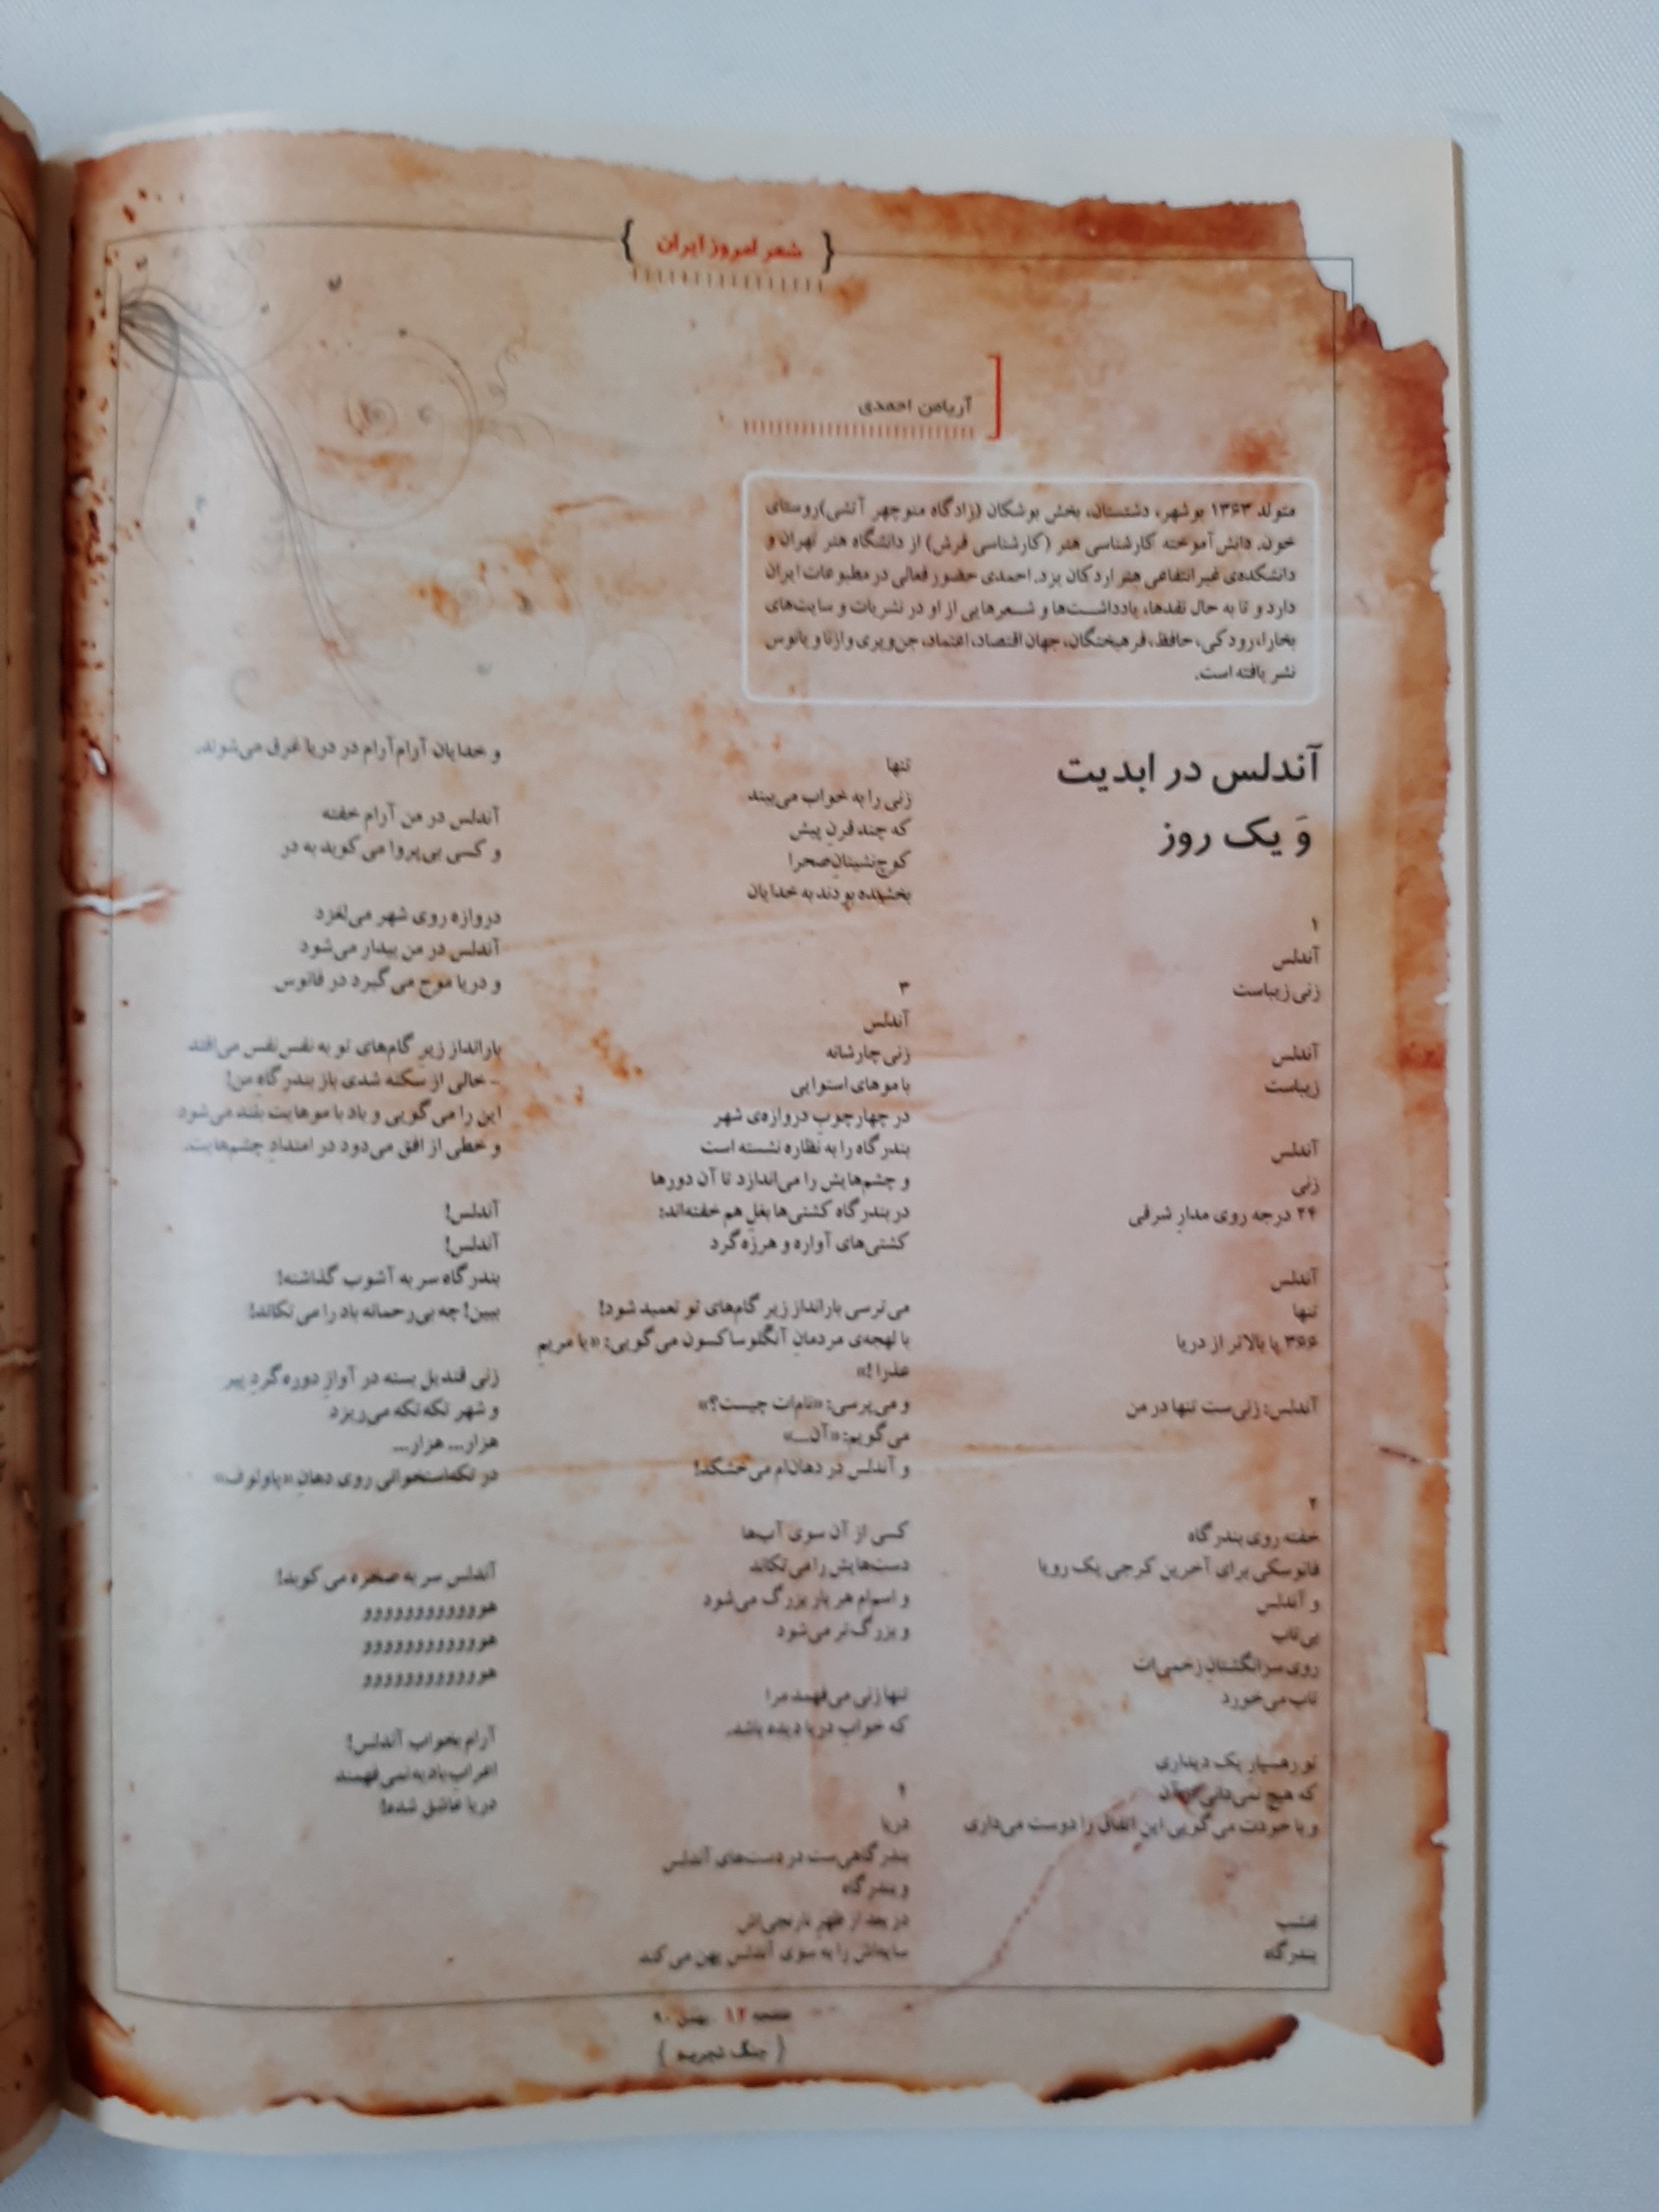 شعر امروز ایران
آریامن احمدی
متولد ۱۳۶۳ بوشهر، دشتستان، بخش بوشکان (زادگاه منوچهر آتشی) روستای
خون. دانش‌آموخته کارشناسی هنر (کارشناسی فرش) از دانشگاه هنر تهران و
دانشکده‌ی غیرانتفاعی هنر اردکان یزد. احمدی حضور فعالی در مطبوعات ایران
دارد و تا به حال نقدها، یادداشت‌ها و شعرهایی از او در نشریات و سایت‌های
بخارا، رودکی، حافظ، فرهیختگان، جهان اقتصاد، اعتماد، جن‌و‌پری و ازنا و پانوس
نشر یافته است.
آندلس در ابدیت
وَ یک روز
۱
آندلس
زنی زیباست
آندلس
زیباست
آندلس
زنی
۲۴ درجه روی مدارِ شرقی
آندلس
تنها
۳۶۶ پا بالاتر از دریا
آندلس: زنی‌ست تنها در من
۲
خفته روی بندرگاه
فانوسکی برای آخرین کرجی یک رویا
و آندلس
بی‌تاب
روی سرانگشتانِ زخمی‌ات
تاب می‌خورد
تو رهسپارِ یک دیداری
که هیچ نمی‌دانی از آن
و با خودت می‌گویی این اتفاق را دوست می‌داری
امشب
بندرگاه
تنها
زنی را به خواب می‌بیند
که چند قرنِ پیش
کوچ‌نشینانِ صحرا
بخشیده بودند به خدایان
۳
آندلس
زنی چارشانه
با موهای استوایی
در چهارچوبِ دروازه‌ی شهر
بندرگاه را به نظاره نشسته است
و چشم‌هایش را می‌اندازد تا آن دورها
در بندرگاه کشتی‌ها بغلِ هم خفته‌اند:
کشتی‌های آواره و هرزه‌گرد
می‌ترسی بارانداز زیر گام‌های تو تعمید شود!
با لهجه‌ی مردمانِ آنگلوساکسون می‌گویی: «یا مریمِ
عذرا!»
و می‌پرسی: «نام‌ات چیست؟»
می‌گویم: «آن...»
و آندلس در دهان‌ام می‌خشکد!
کسی از آن سوی آب‌ها
دست‌هایش را می‌تکاند
و اسم‌ام هر بار بزرگ می‌شود
و بزرگ‌تر می‌شود
تنها زنی می‌فهمد مرا
که خوابِ دریا دیده باشد.
۴
دریا
بندرگاهی‌ست در دست‌های آندلس
و بندرگاه
در بعد از ظهرِ نارنجی‌اش
سایه‌اش را به سوی آندلس پهن می‌کند
و خدایان آرام‌آرام در دریا غرق می‌شوند.
آندلس در من آرام خفته
و کسی بی‌پروا می‌کوبد به در
دروازه روی شهر می‌لغزد
آندلس در من بیدار می‌شود
و دریا موج می‌گیرد در فانوس
بارانداز زیرِ گام‌های تو به نفس‌نفس می‌افتد
- خالی از سکنه شدی باز بندرگاهِ من!
این را می‌گویی و باد با موهایت بلند می‌شود
و خطی از افق می‌دود در امتدادِ چشم‌هایت.
آندلس!
آندلس!
بندرگاه سر به آشوب گذاشته!
ببین! چه بی‌رحمانه باد را می‌تکاند!
زنی قندیل بسته در آوازِ دوره‌گردِ پیر
و شهر تکه‌تکه می‌ریزد
هزار... هزار...
در تکه‌استخوانی روی دهانِ «پاولوف»
آندلس سر به صخره می‌کوبد!
هوووووووووووو
هوووووووووووو
هوووووووووووو
آرام بخواب آندلس!
اعرابِ بادیه نمی‌فهمند
دریا عاشق شده!
صفحه ۱۲ بهمن ۹۰
جنگ تجربه